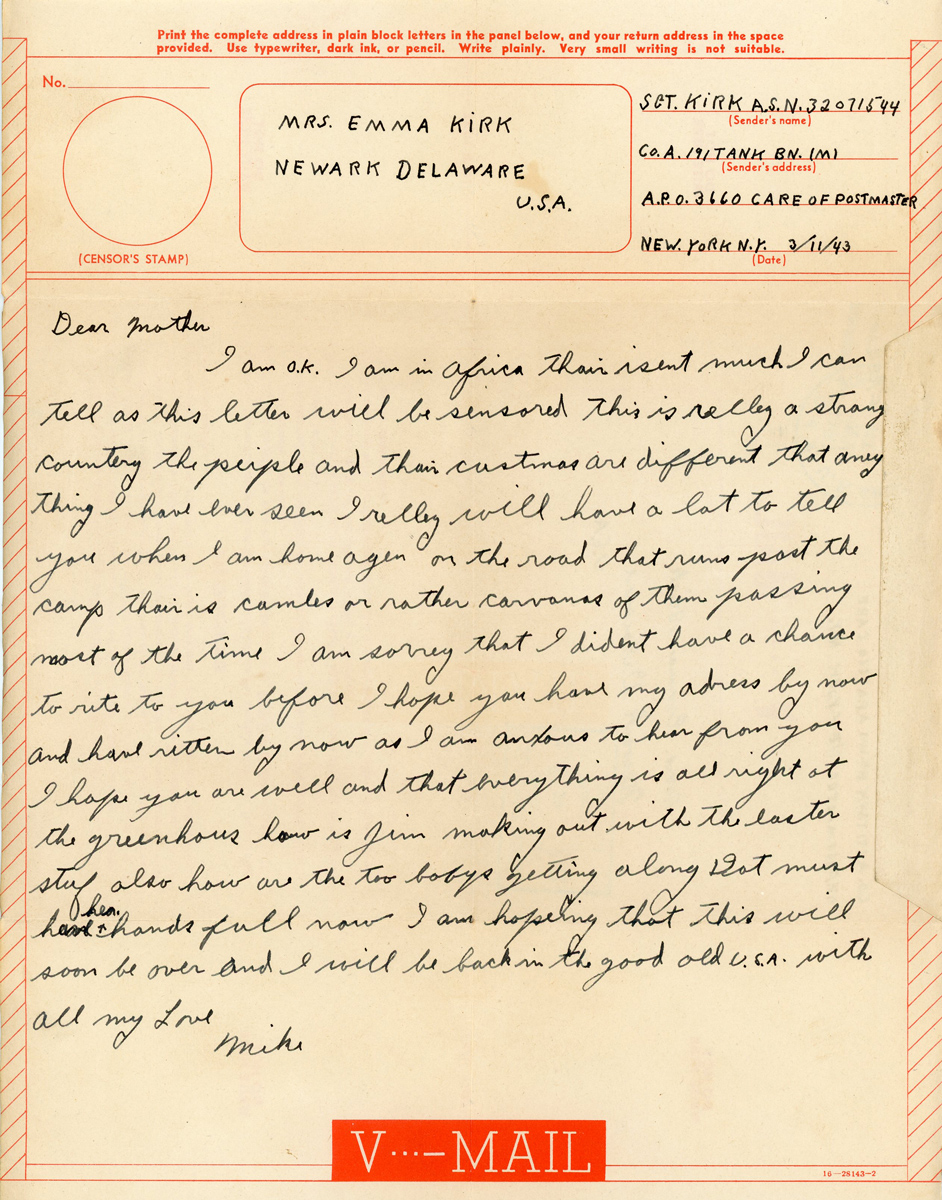 Print the complete address in plain block letters in the panel below, and your return address in the space
provided. Use typewriter, dark ink, or pencil. Write plainly. Very small writing is not suitable.
No.
(CENSOR'S STAMP)
MRS. EMMA KIRK
NEWARK DELAWARE
U.S.A.
SGT. KIRK A.S.N. 32071544
(Sender's name)
CO. A. 191 TANK BN. (M)
(Sender's address)
A.P.O. 3660 CARE OF POSTMASTER
NEW. YORK N.Y. 3/11/43
(Date)
Dear Mother
I am O.K. I am in Africa thair isent much I can
tell as this letter will be sensored this is relley a strang
countery the peiple and thair custmas are different that aney
thing I have ever seen I relley will have a lot to tell
you when I am home agen on the road that runs past the
camp thair is camles or rather carvanas of them passing
most of the time I am sorrey that I dident have a chance
to rite to you before I hope you have my adress by now
and have ritten by now as I am anxous to hear from you
I hope you are well and that everything is all right at
the greenhous how is Jim making out with the easter
stuf also how are the too babys getting along Dot must
have her hands full now I am hopeing that this will
soon be over and I will be back in the good old U.S.A. with
all my Love
Mike
V···—MAIL
16—28143-2